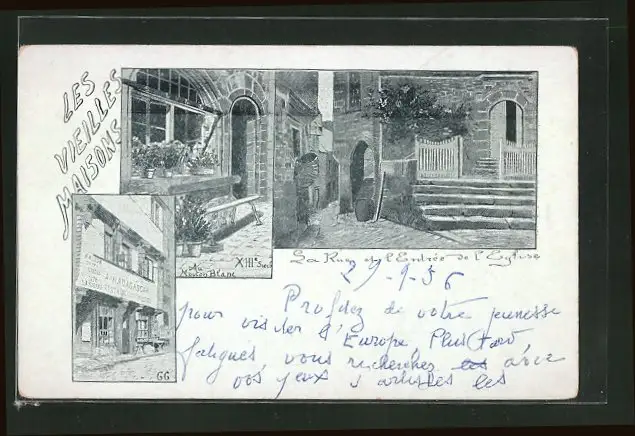 LES
VIEILLES
MAISONS
XIIIe Siècle
Au Mouton Blanc
La Rue et l'Entrée de l'Eglise
A MADAGASCAR
GG
29-9-56
Profitez de votre jeunesse
pour visiter l'Europe Plus tard
fatigués vous recherchez avec
vos yeux d'artistes les